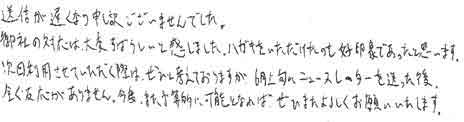 送信が遅くなり申し訳ございませんでした。
御社の対応は大変すばらしいと感じました。ハガキをいただけたのも好印象であったと思います。
次回利用させていただく際は、ぜひと考えておりますが 6月上旬にニュースレターを送った後、
全く反応がありません。今後、また予算的に可能となれば ぜひまたよろしくお願いいたします。